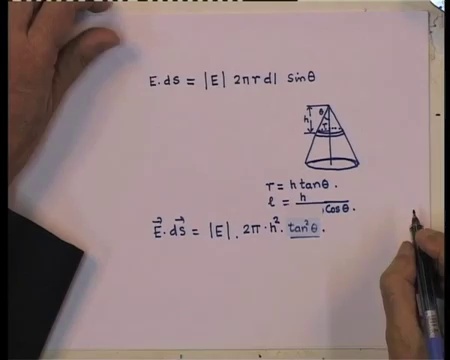 E.ds = |E| 2πr dl sinθ
h θ
r
r = h tanθ.
l = h / cosθ.
E⃗.dS⃗ = |E|. 2π.h². tan²θ.